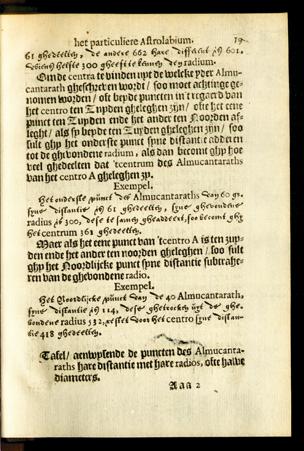 het particuliere Astrolabium. 19
61 ghedeelten, de andere 662 hare different is 601,
wiens helfte 300 gheeft te kennen den radium.
Om de centra te vinden upt de welcke yder Almu-
cantarath gheschreven wordt / soo moet achtinge ge-
nomen worden / oft beyde puncten in 't regard van
het centro ten Zuyden gheleghen zijn / ofte het eene
punct ten Zuyden ende het ander ten Noorden af-
leght / als sy beyde ten Zuyden gheleghen zijn / soo
sult ghy het onderste punct syne distantie adderen
tot de ghevondene radium, als dan becomt ghy hoe
veel ghedeelten dat 't centrum des Almucantaraths
van het centro A gheleghen zy.
Exempel.
Het onderste punct des Almucantaraths van 60 gr.
syne distantie is 61 gheedelten, syne ghevondene
radius is 300, dese te samen gheaddeert, soo becomt ghy
het centrum 361 ghedeelten.
Maer als het eene punct van 't centro A is ten zuy-
den ende het ander ten noorden gheleghen / soo sult
ghy het Noordlijcke punct syne distantie subtrahe-
ren van de ghevondene radio.
Exempel.
Het Noordlijcke punct van de 40 Almucantarath,
syne distantie is 114, dese ghetrocken uyt de ghe-
vondene radius 532, reslet voor het centro syne distan-
tie 418 ghedeelten.
Tafel / aenwysende de puncten des Almucanta-
raths hare distantie met hare radios, ofte halve
diameters.
Aaa 2